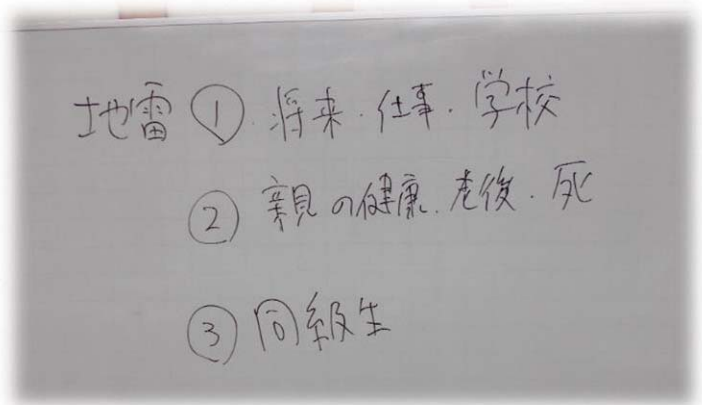 地雷 ① 将来・仕事・学校
② 親の健康.老後・死
③ 同級生